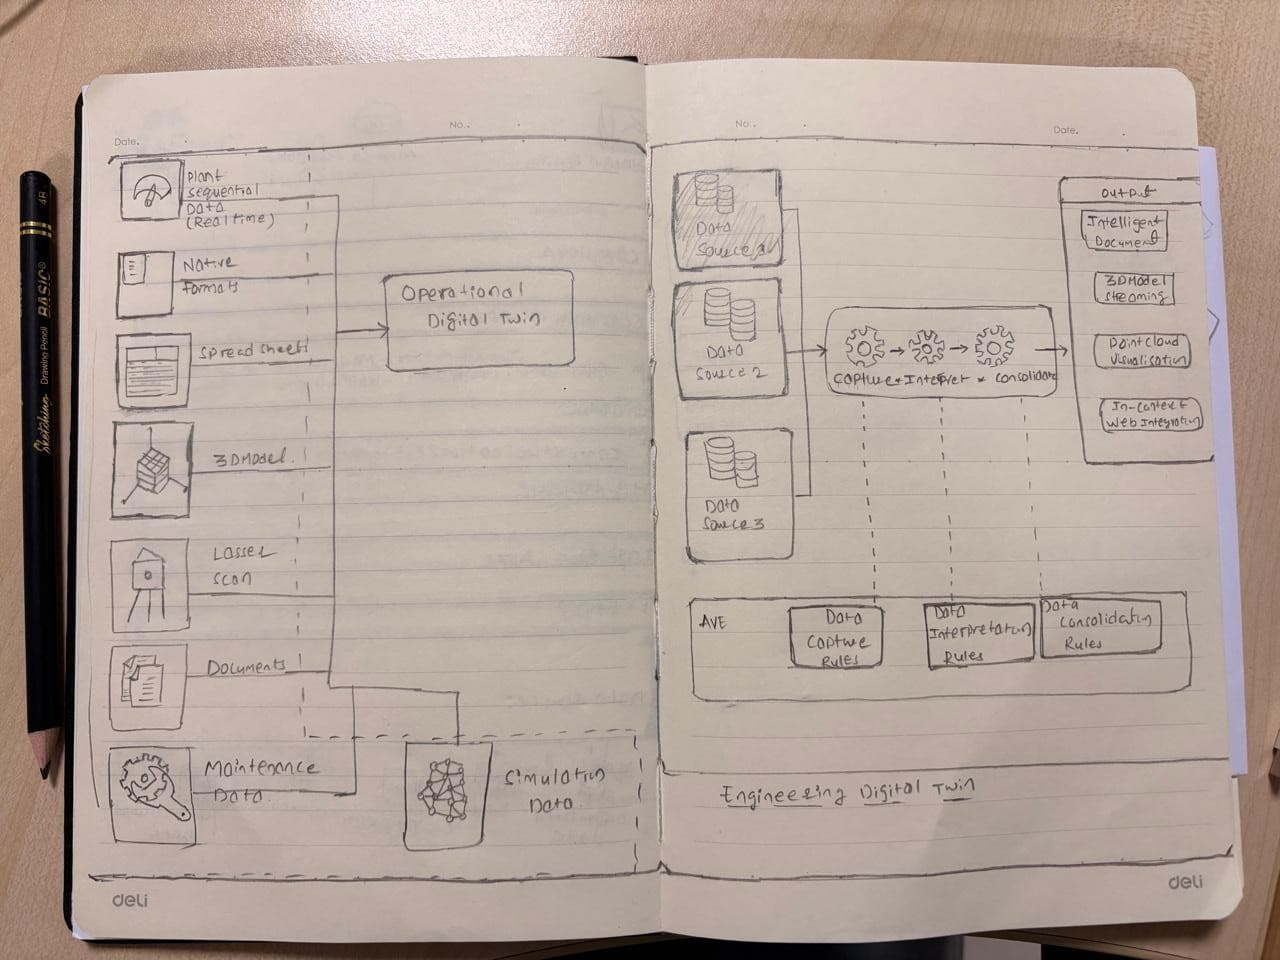 Date.
No.
Plant
Sequential
Data
(Realtime)
Native
Formats
Spreadsheets
3DModel.
Lasser
Scan
Documents
Maintenance
Data
Operational
Digital Twin
Simulation
Data
deli
No.
Date.
Data
Source 1
Data
Source 2
Data
Source 3
Capture → Interpret → Consolidate
Output
Intelligent
Document
3DModel
Steaming
PointCloud
Visualisation
In-Context
Web Integration
AVE
Data
Capture
Rules
Data
Interpretation
Rules
Data
Consolidation
Rules
Engineering Digital Twin
deli
Sketching Drawing Pencil BASIC® 4B